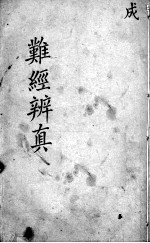 成
難經辨真